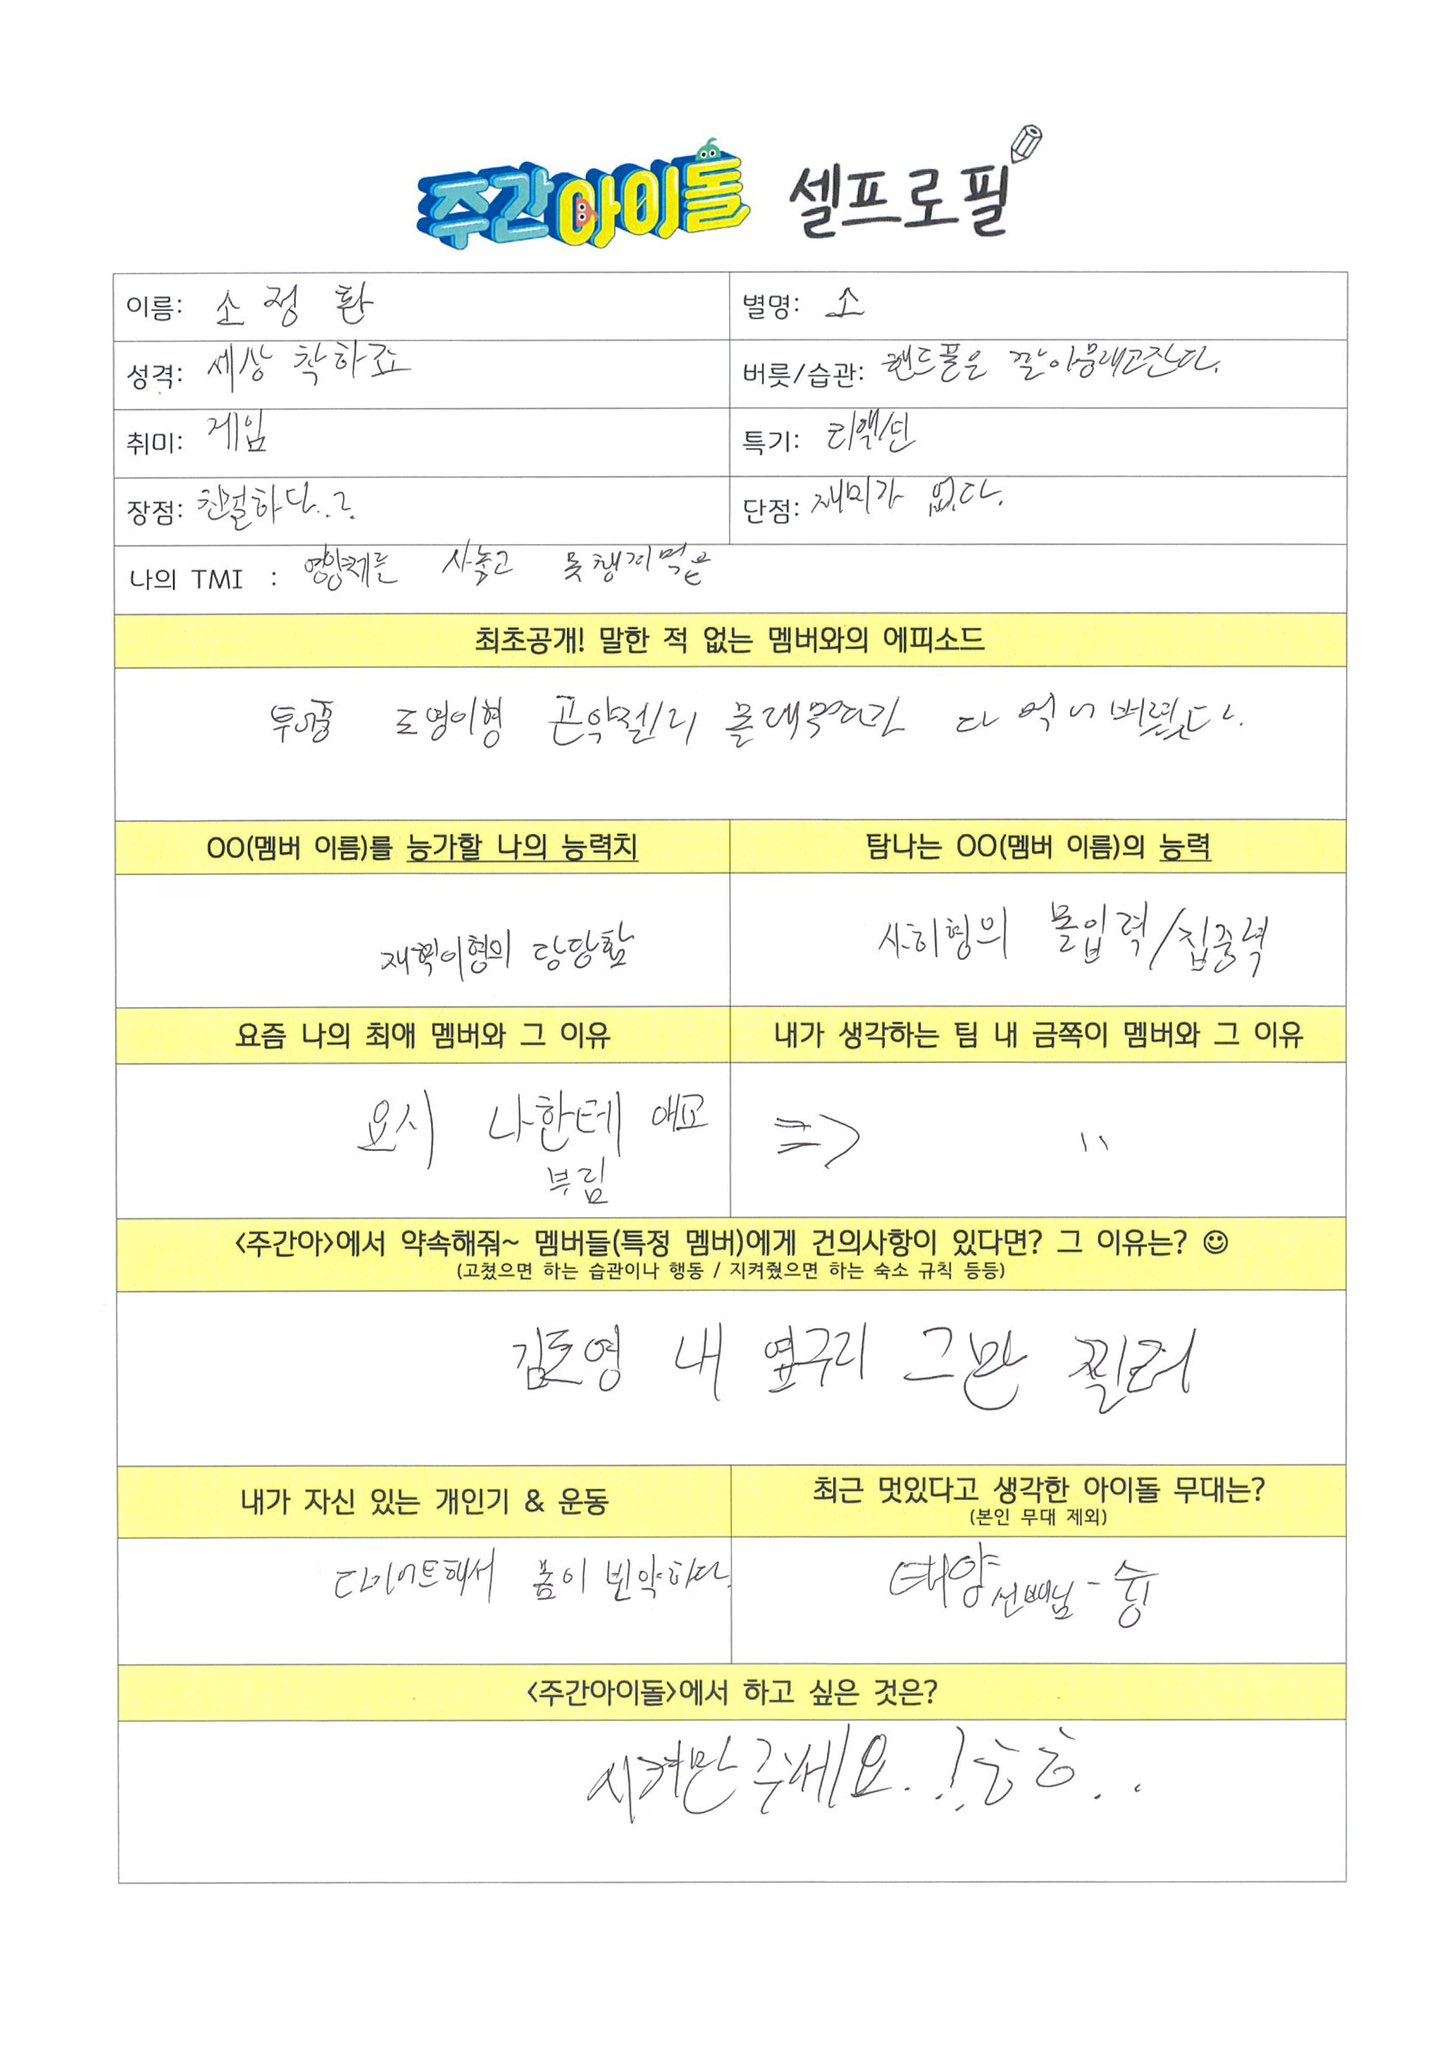 주간아이돌 셀프로필
이름: 소정환
별명: 소
성격: 세상 착하죠
버릇/습관: 핸드폰을 깔아뭉개고잔다.
취미: 게임
특기: 리액션
장점: 친절하다..?
단점: 재미가 없다.
나의 TMI : 영양제를 사놓고 못챙겨먹음
최초공개! 말한 적 없는 멤버와의 에피소드
투어중 도영이형 곤약젤리 몰래먹다가 다 먹어버렸다.
OO(멤버 이름)를 능가할 나의 능력치
탐나는 OO(멤버 이름)의 능력
재혁이형의 당당함
사히형의 몰입력/집중력
요즘 나의 최애 멤버와 그 이유
내가 생각하는 팀 내 금쪽이 멤버와 그 이유
요시 나한테 애교
부림
=> "
<주간아>에서 약속해줘~ 멤버들(특정 멤버)에게 건의사항이 있다면? 그 이유는? ☺
(고쳤으면 하는 습관이나 행동 / 지켜줬으면 하는 숙소 규칙 등등)
김도영 내 옆구리 그만 찔러
내가 자신 있는 개인기 & 운동
최근 멋있다고 생각한 아이돌 무대는?
(본인 무대 제외)
다이어트해서 몸이 빈약하다.
태양선배님 - 슝
<주간아이돌>에서 하고 싶은 것은?
시켜만주세요.!흐흐..